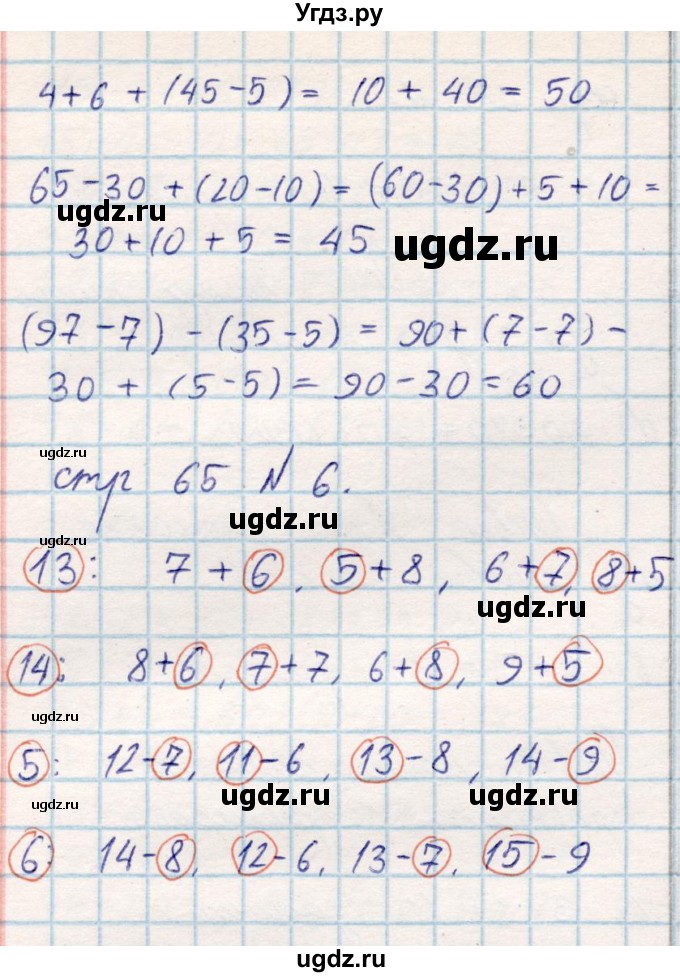 Угдз.ру
4+6 + (45-5) = 10 + 40 = 50
65-30 + (20-10) = (60-30)+5+10 =
ugdz.ru
30+10+5 = 45
ugdz.ru
(97-7) - (35-5) = 90+(7-7) -
30 + (5-5) = 90-30=60
ugdz.ru
стр 65 № 6.
ugdz.ru
ugdz.ru
13: 7+6, 5+8, 6+7, 8+5
ugdz.ru
14: 8+6, 7+7, 6+8, 9+5
ugdz.ru
5: 12-7, 11-6, 13-8, 14-9
ugdz.ru
ugdz.ru
ugdz.ru
6: 14-8, 12-6, 13-7, 15-9
ugdz.ru